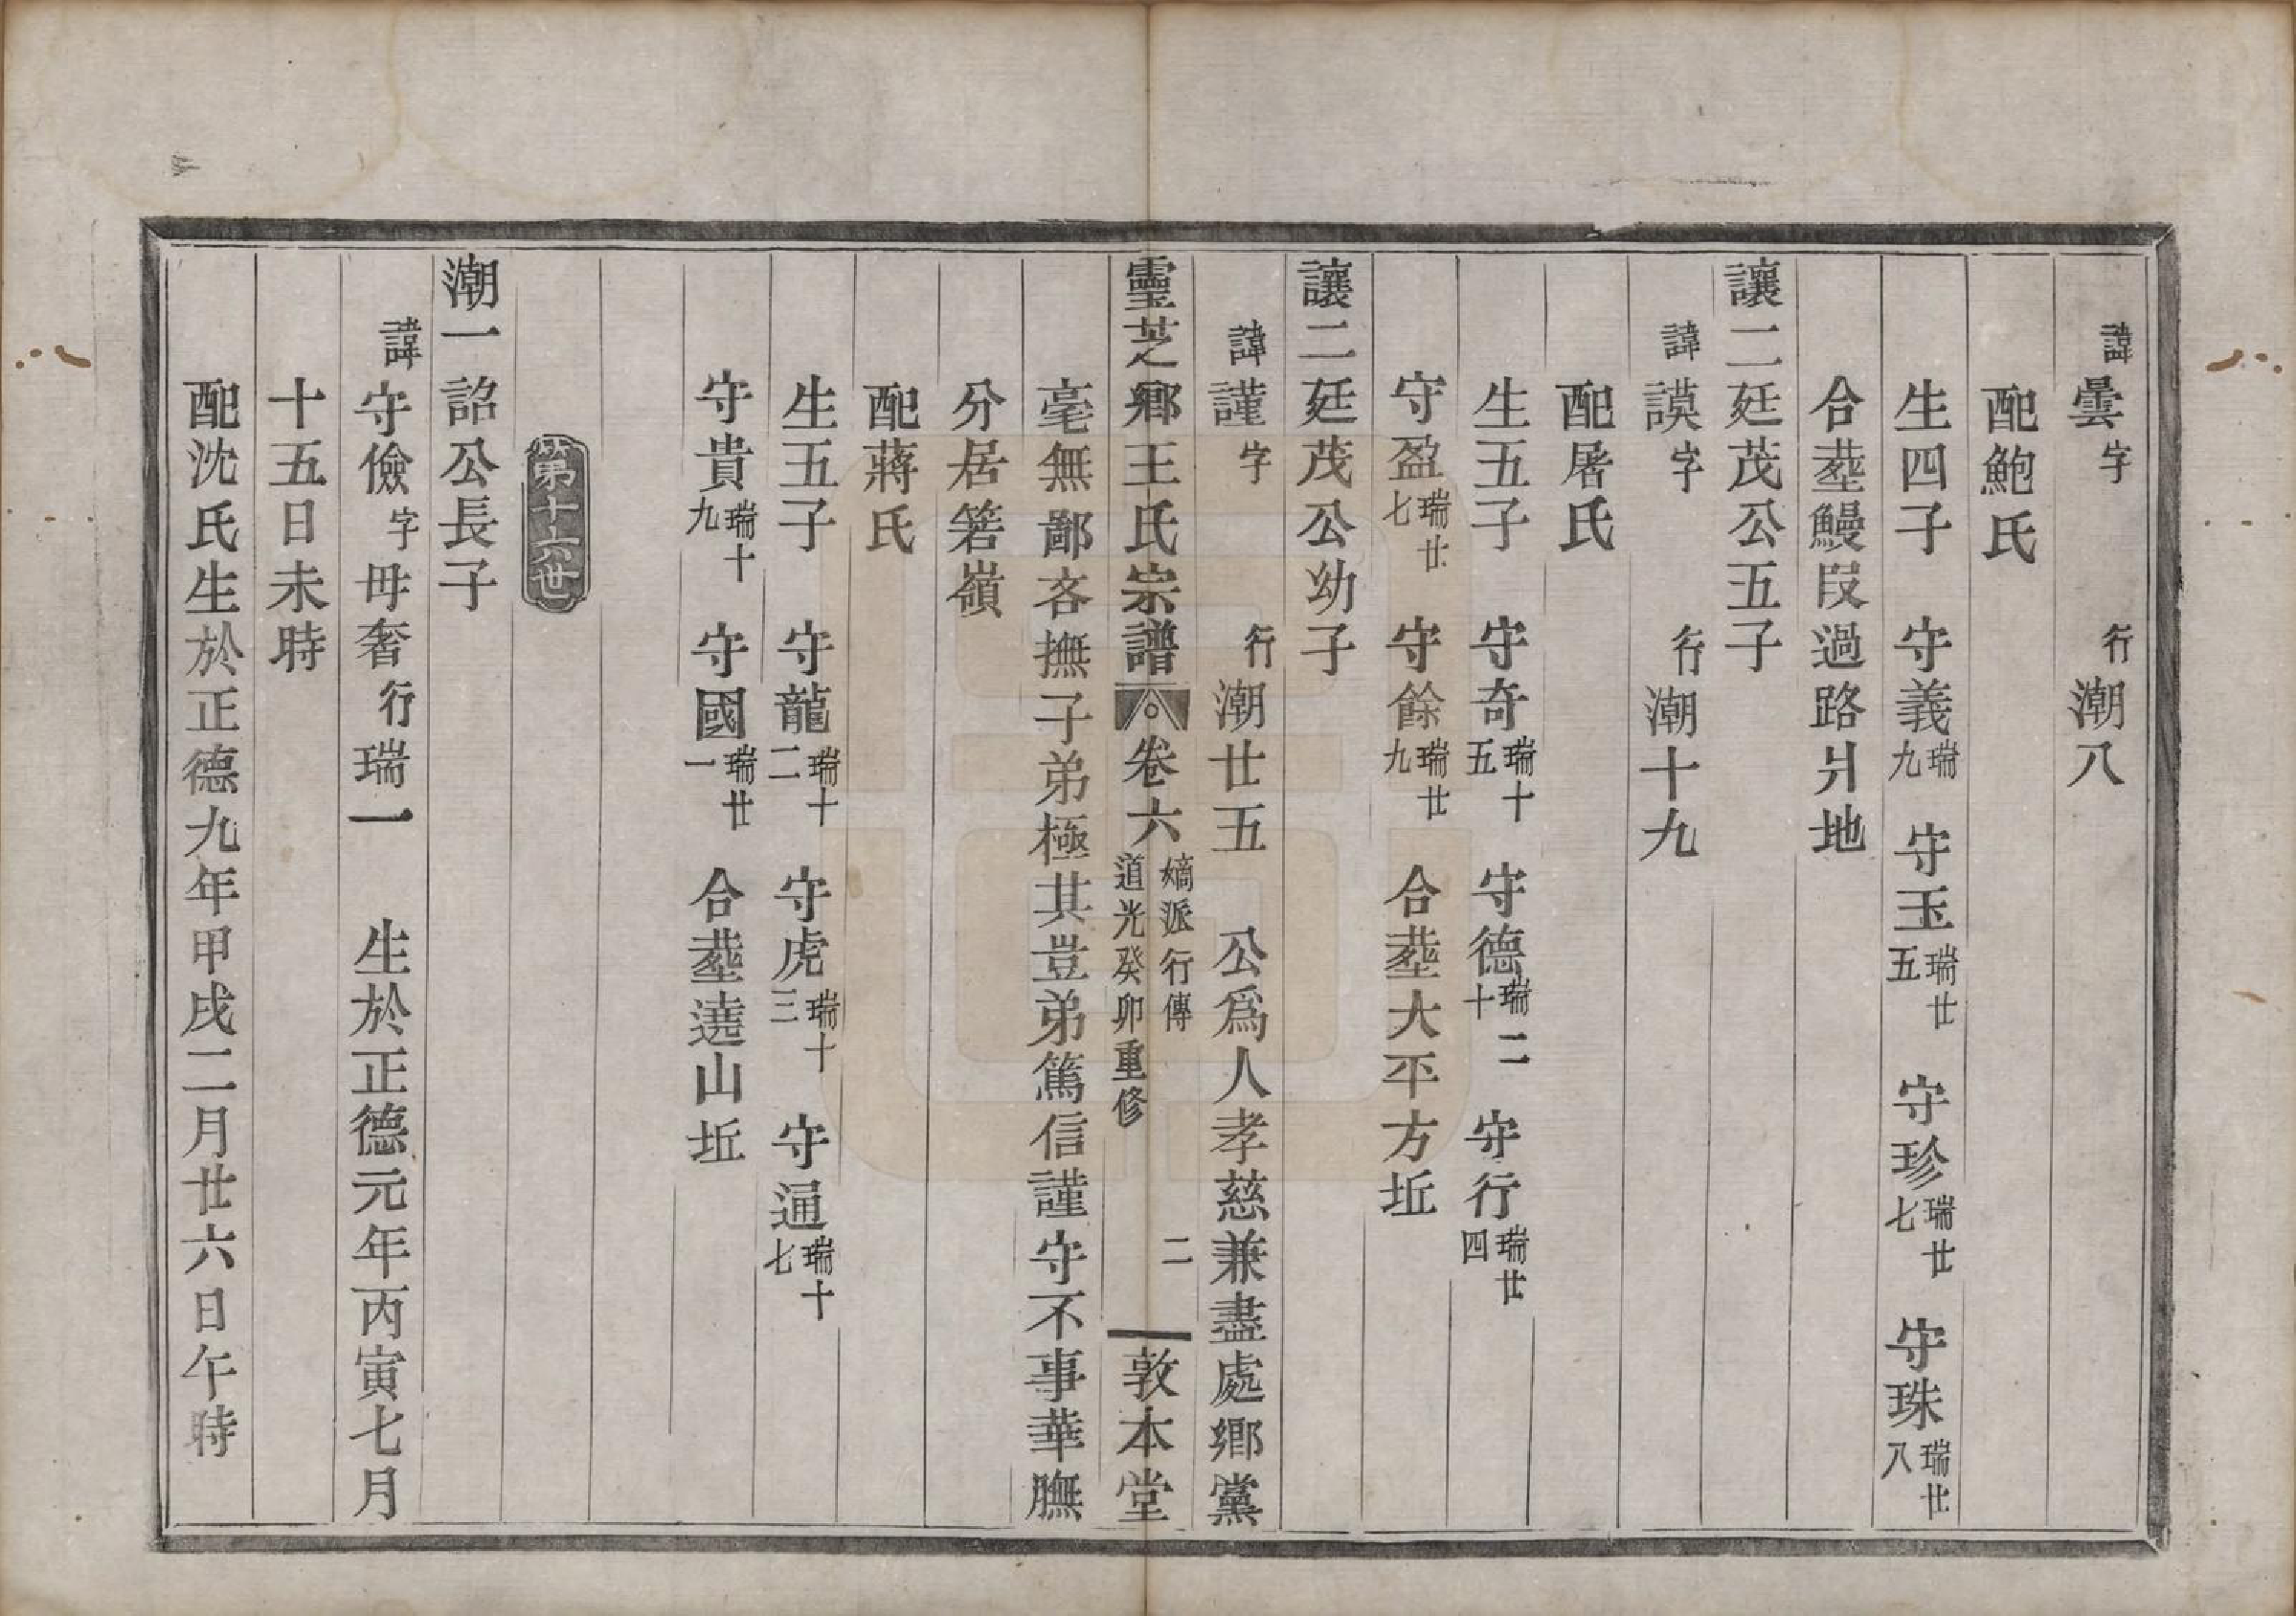 諱曇字 行潮八
配鮑氏
生四子 守義瑞九 守玉瑞廿五 守珍瑞廿七 守珠瑞廿八
合塟鰻叚過路爿地
讓二廷茂公五子
諱謨字 行潮十九
配屠氏
生五子 守奇瑞十五 守德瑞二十 守行瑞廿四
守盈瑞廿七 守餘瑞廿九 合塟大平方坵
讓二廷茂公幼子
諱謹字 行潮廿五 公爲人孝慈兼盡處鄉黨
靈芝鄉王氏宗譜 卷六 嫡派行傳 道光癸卯重修 二 敦本堂
毫無鄙吝撫子弟極其豈弟篤信謹守不事華膴
分居箬嶺
配蔣氏
生五子 守龍瑞十二 守虎瑞十三 守通瑞十七
守貴瑞十九 守國瑞廿一 合塟遶山坵
第十六世
潮一詔公長子
諱守儉字毋奢行瑞一 生於正德元年丙寅七月
十五日未時
配沈氏生於正德九年甲戌二月廿六日午時